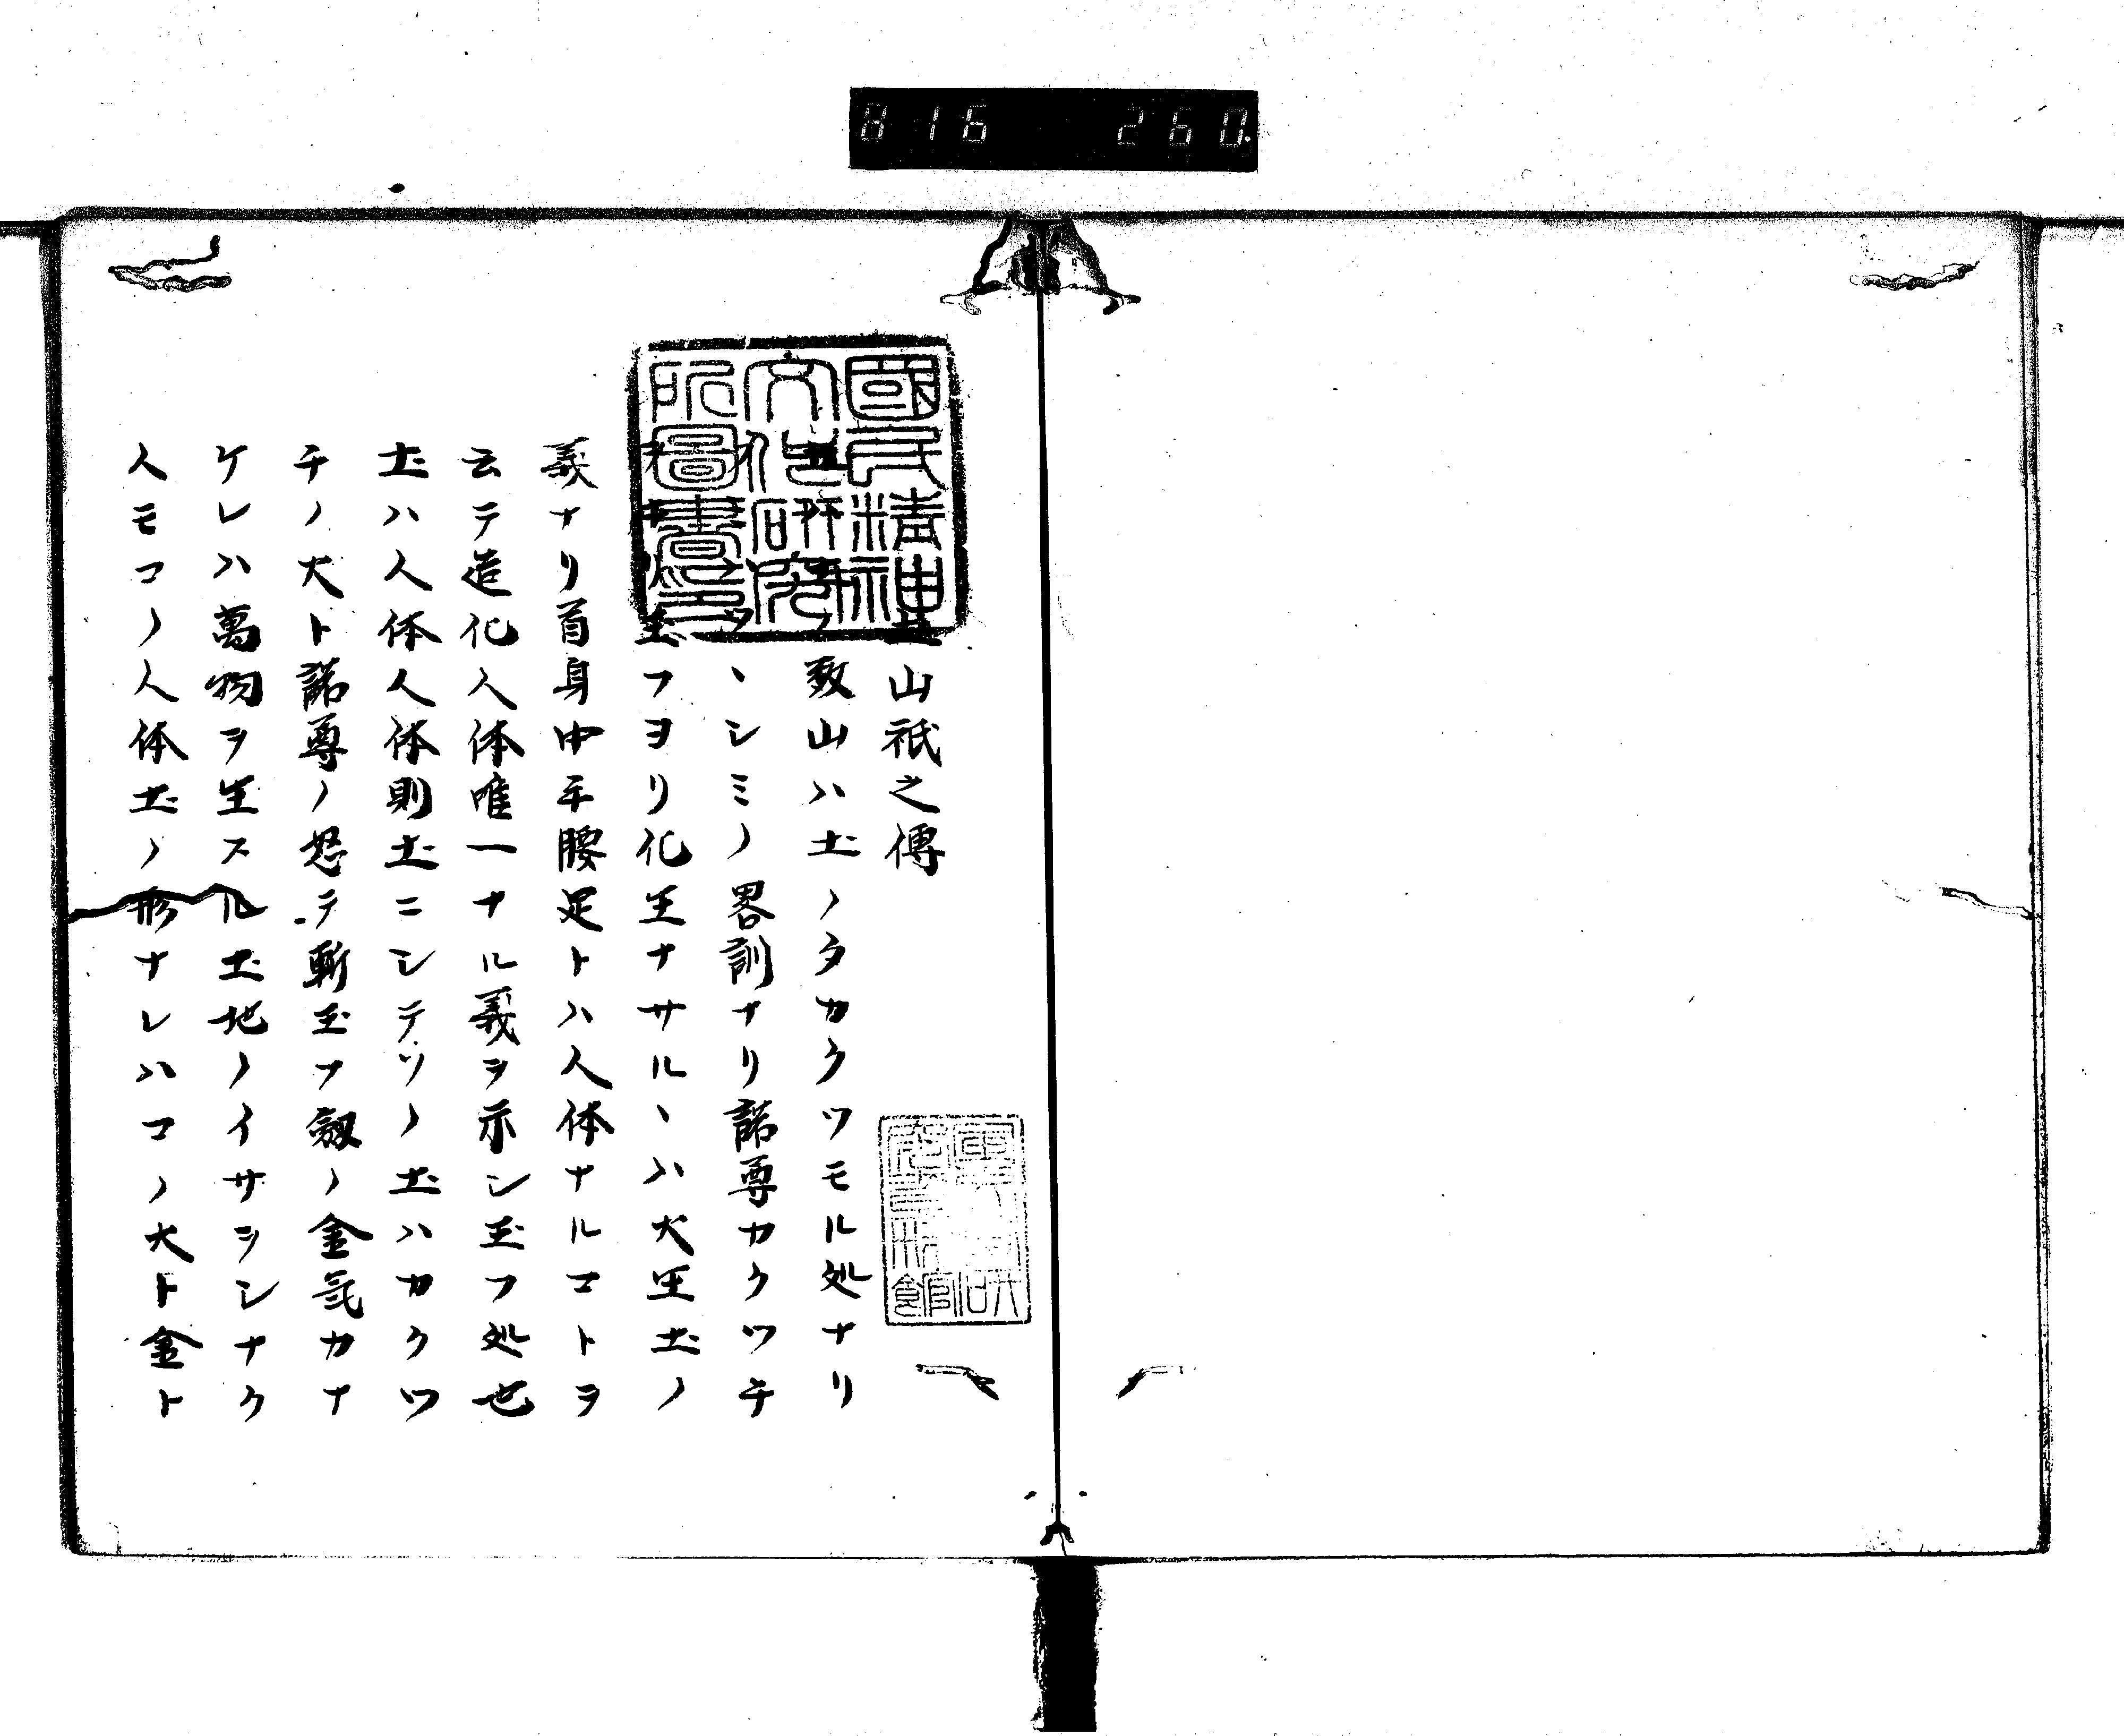 816 260.
國民精神
文化研究
所圖書印
山祇之傳
数山ハ土ノタカクツモル処ナリ
ヽシミノ畧訓ナリ諾尊カクツチ
玉フヨリ化生ナサルヽハ火生土ノ
義ナリ首身中手腰足トハ人体ナルコトヲ
云テ造化人体唯一ナル義ヲ示シ玉フ処也
土ハ人体人体則土ニシテソノ土ハカクツ
チノ火ト諾尊ノ怒テ斬玉フ劔ノ金気カナ
ケレハ萬物ヲ生スル土地ノイサヲシナク
人モコノ人体土ノ形ナレハコノ火ト金ト